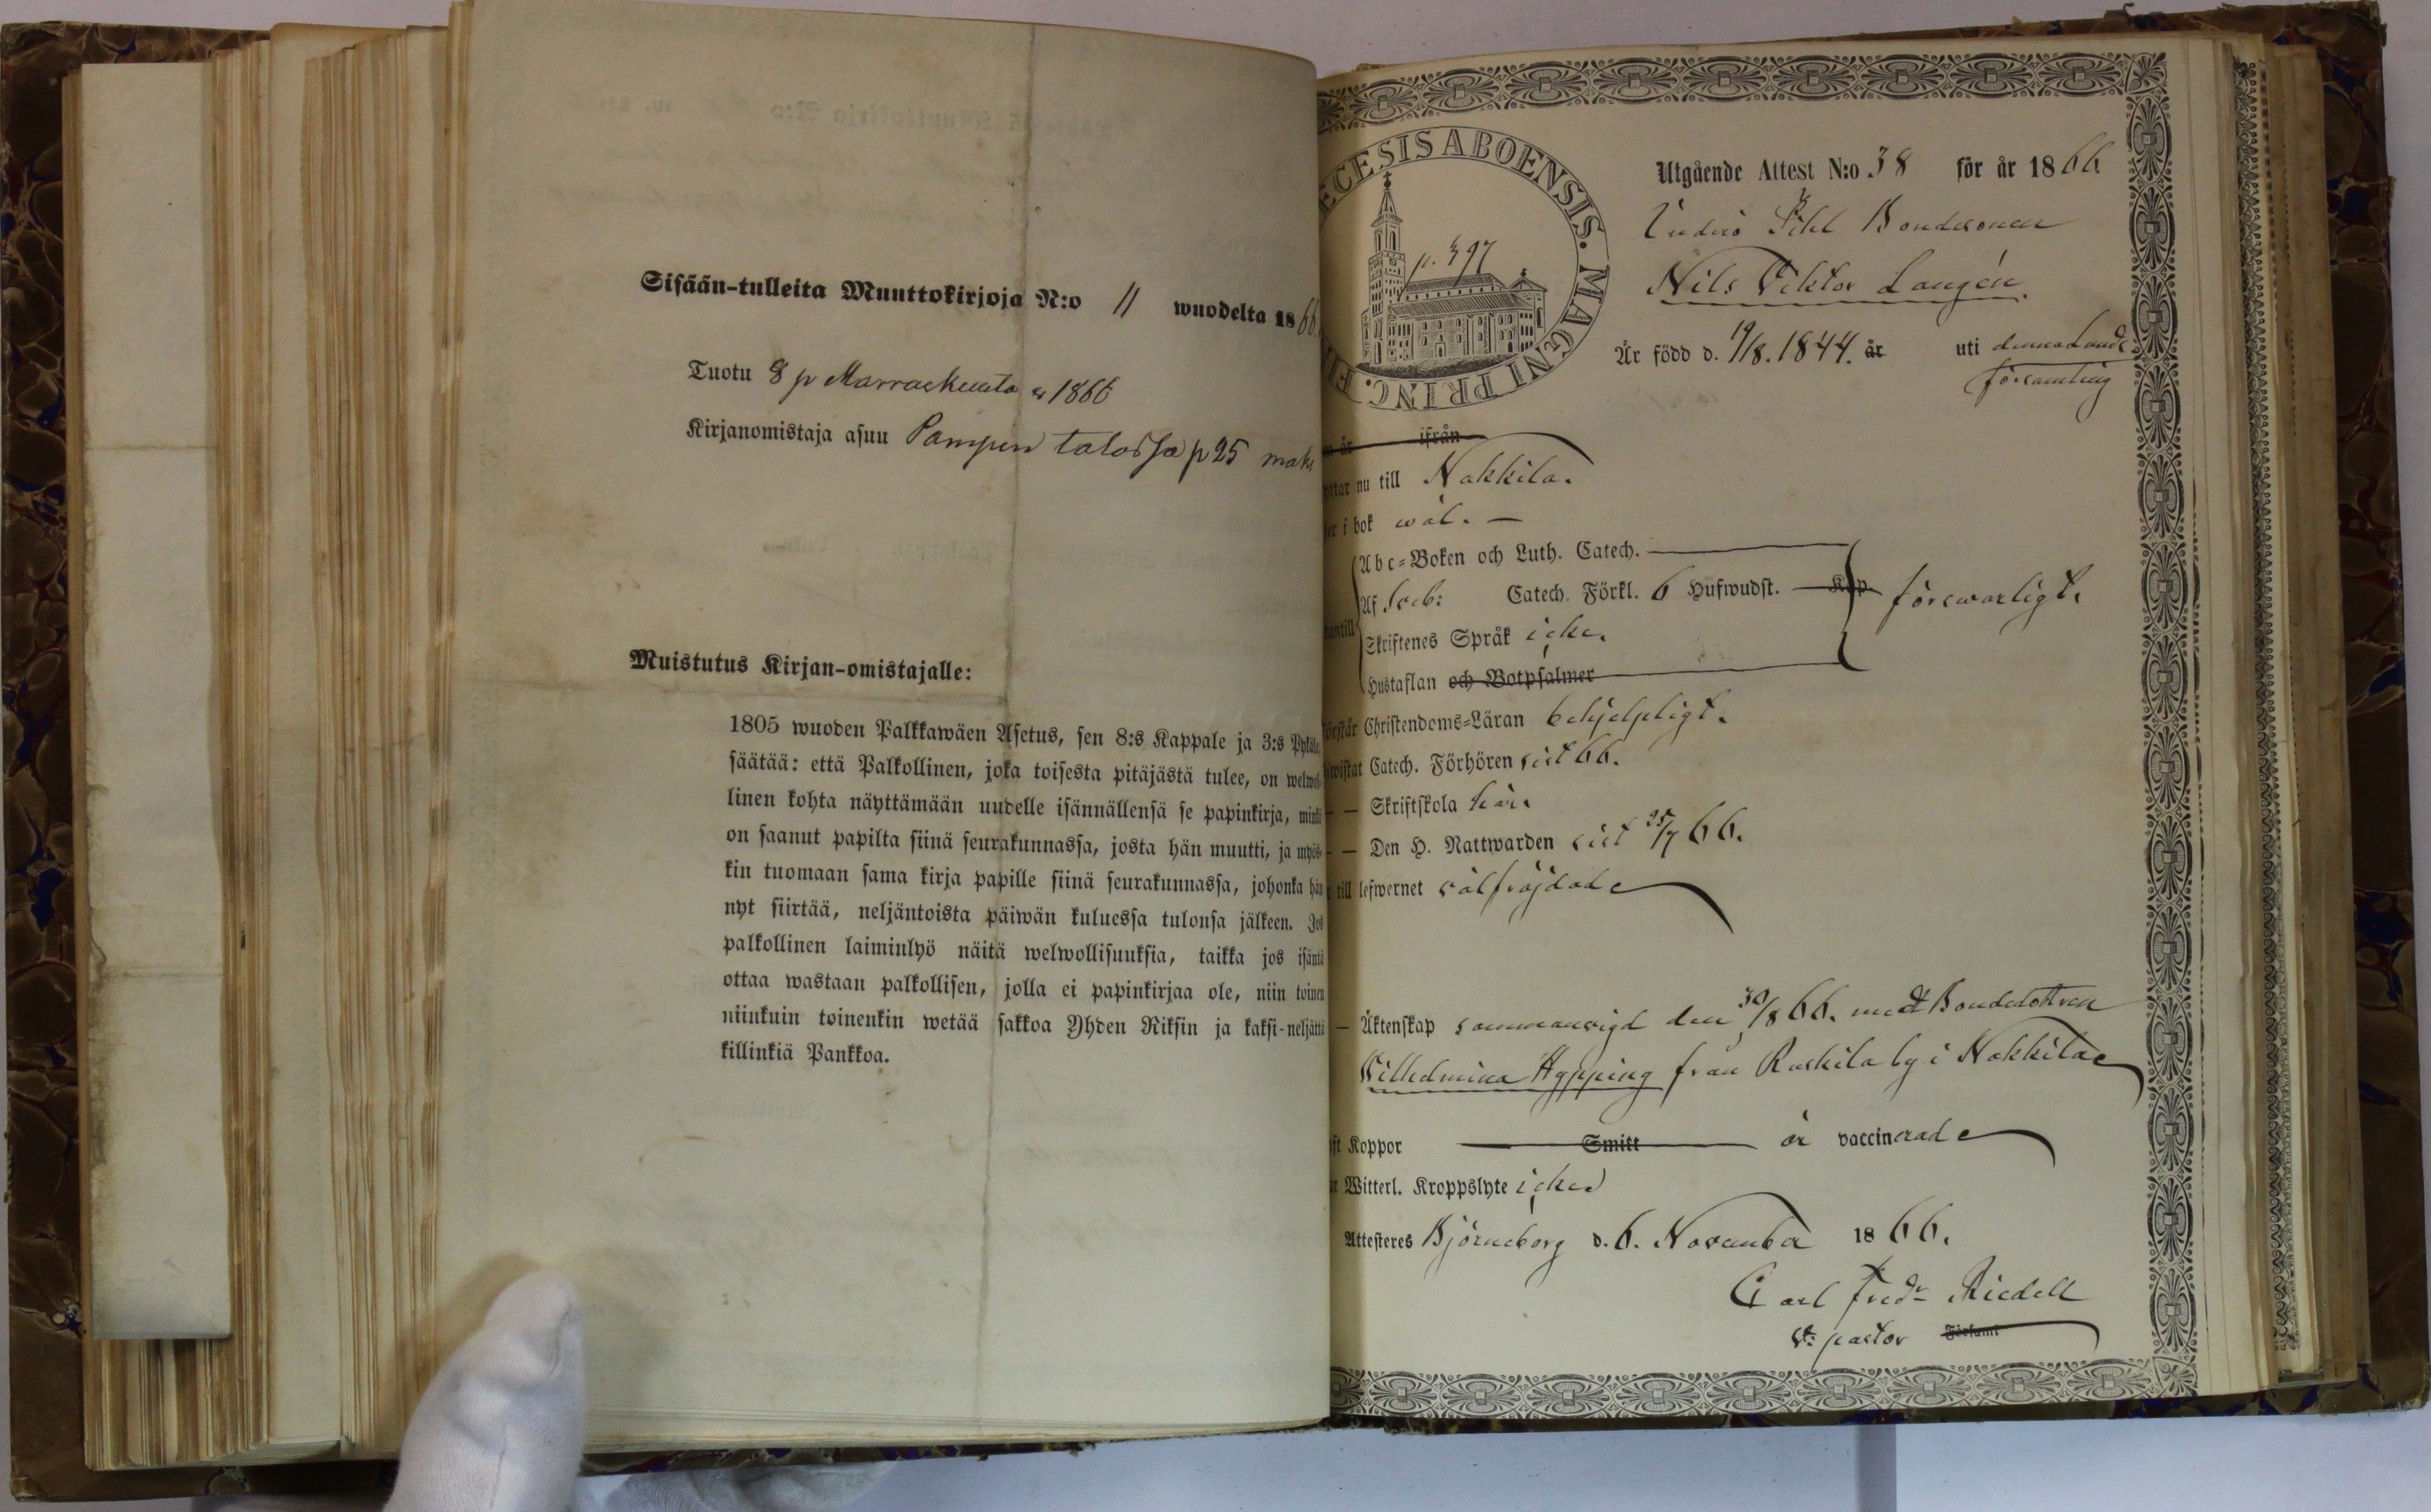 Sisään-tulleita Muuttokirjoja N:o 11 wuodelta 1866.
Tuotu 8 p Marraskuuta 1866
Kirjanomistaja asuu Pampin talossa p 25
Muistutus Kirjan-omistajalle:
1805 wuoden Palkkawäen Asetus, sen 8:s Kappale ja 3:s
säätää: että Palkollinen, joka toisesta pitäjästä tulee, on welwol-
linen kohta näyttämään uudelle isännällensä se papinkirja, minkä
on saanut papilta siinä seurakunnassa, josta hän muutti, ja myös-
kin tuomaan sama kirja papille siinä seurakunnassa, johonka hän
nyt siirtää, neljäntoista päiwän kuluessa tulonsa jälkeen. Jos
palkollinen laiminlyö näitä welwollisuuksia, taikka jos isäntä
ottaa wastaan palkollisen, jolla ei papinkirjaa ole, niin toinen
niinkuin toinenkin wetää sakkoa Yhden Riksin ja kaksi-neljättä
killinkiä Pankkoa.
ECESIS ABOENSIS. MAGNI PRINC. FI
p. 497
Utgående Attest N:o 38 för år 1866
Bondesonen
Nils Viktor Langén.
Är född d. 19/8. 1844. år uti denna Lands
församling
år ifrån
nu till Nakkila.
i bok wäl. —
Abc-Boken och Luth. Catech.
Af Sveb: Catech. Förkl. 6 Hufwudst. — Kap. försvarligt.
Skriftenes Språk icke.
Hustaflan och Botpsalmer
Christendoms-Läran behjelpligt.
Catech. Förhören sist 66.
— Skriftskola här.
— Den H. Nattwarden sist 25/7 66.
till lefwernet välfräjdad
— Äktenskap sammanvigd den 30/8 66. med Bondedottren
Vilhelmina Hypping från Ruskila by i Nakkila
Koppor Smitt är vaccinerad
Witterl. Kroppslyte icke
Attesteres Björneborg d. 6. November 1866.
Carl Fredr Riedell
v. pastor Församl